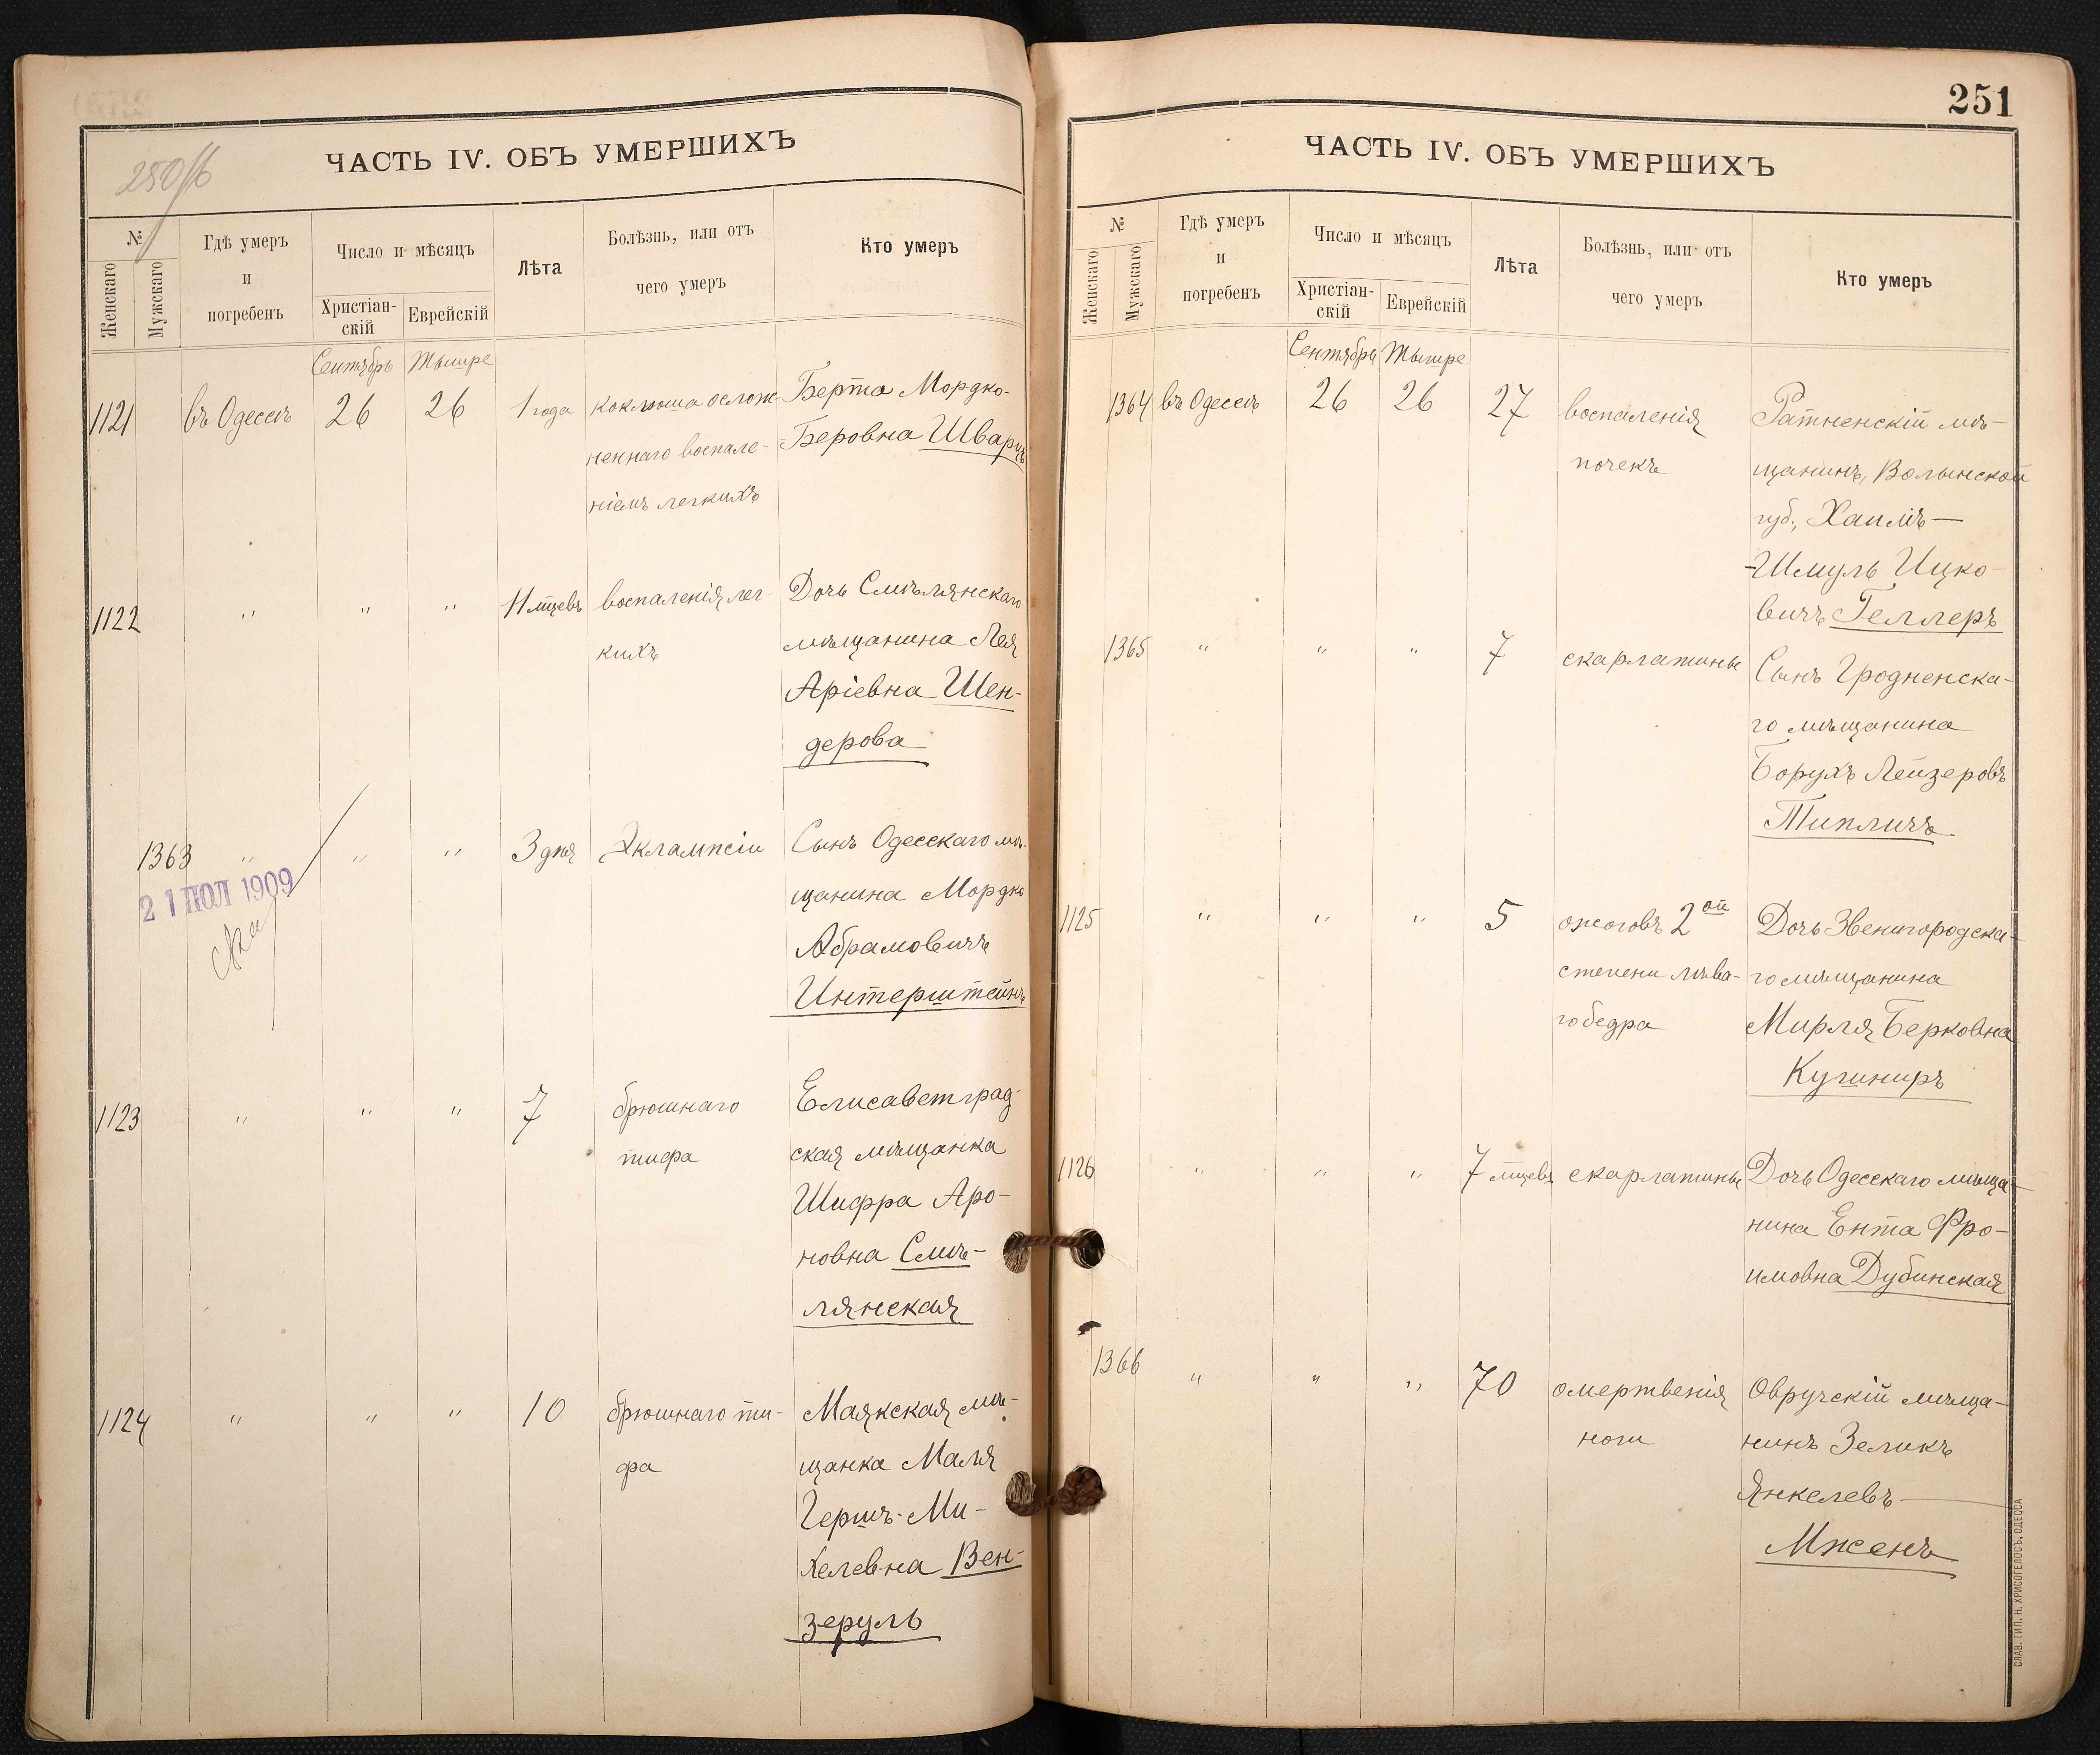 250/б
ЧАСТЬ IV. ОБЪ УМЕРШИХЪ
№
Женскаго
Мужскаго
Гдѣ умеръ
и
погребенъ
Число и мѣсяцъ
Христіан-
скій
Еврейскій
Лѣта
Болѣзнь, или отъ
чего умеръ
Кто умеръ
Сентябрь Тышре
1121 въ Одессѣ 26 26 1 года коклюша ослож- Берта Мордко-
неннаго воспале- Беровна Шварцъ
ніемъ легкихъ
1122 " " " 11 мцевъ воспаленія лег- Дочь Смѣлянскаго
кихъ мѣщанина Лея
Аріевна Шен-
дерова
1363 " " " 3 дня Эклампсіи Сынъ Одесскаго мѣ-
щанина Мордко
Абрамовичъ
Интерштейнъ
21 ІЮЛ 1909
1123 " " " 7 брюшнаго Елисаветград-
тифа ская мѣщанка
Шифра Аро-
новна Смѣ-
лянская
1124 " " " 10 брюшнаго ти- Маякская мѣ-
фа щанка Маля
Гершъ-Ми-
хелевна Вен-
зеруль
251
ЧАСТЬ IV. ОБЪ УМЕРШИХЪ
№
Женскаго
Мужскаго
Гдѣ умеръ
и
погребенъ
Число и мѣсяцъ
Христіан-
скій
Еврейскій
Лѣта
Болѣзнь, или отъ
чего умеръ
Кто умеръ
Сентябрь Тышре
1364 въ Одессѣ 26 26 27 воспаленія Ратненскій мѣ-
почекъ щанинъ, Волынской
губ., Хаимъ-
-Шмуль Ицко-
вичъ Геллеръ
1365 " " " 7 скарлатины Сынъ Гродненска-
го мѣщанина
Борухъ Лейзеровъ
Типличъ
1125 " " " 5 ожоговъ 2ой Дочь Звенигородска-
степени лѣва- го мѣщанина
го бедра Мирля Берковна
Кушниръ
1126 " " " 7 мцевъ скарлатины Дочь Одесскаго мѣща-
нина Ента Фро-
имовна Дубинская
1366 " " " 70 омертвенія Овручскій мѣща-
ноги нинъ Зеликъ
Янкелевъ
Мженъ
СЛАВ. ТИП. Н. ХРИСОГЕЛОСЪ, ОДЕССА